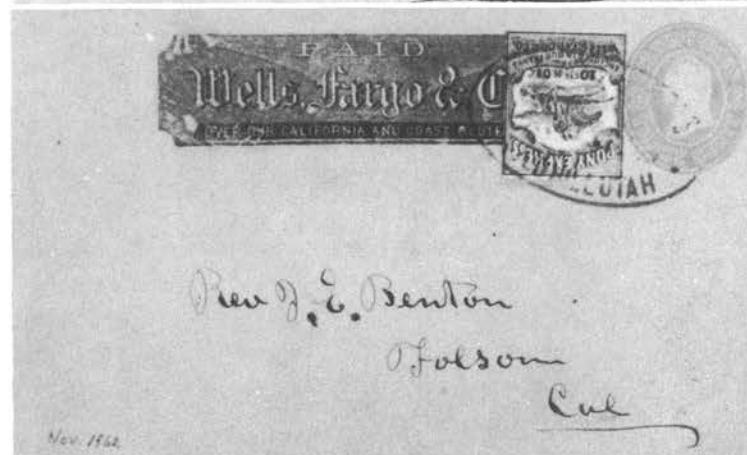 PAID
Wells, Fargo & C
OVER OUR CALIFORNIA AND COAST ROUTE
PONY EXPRESS
UTAH
Rev J. E. Benton
Folsom
Cal
Nov. 1862